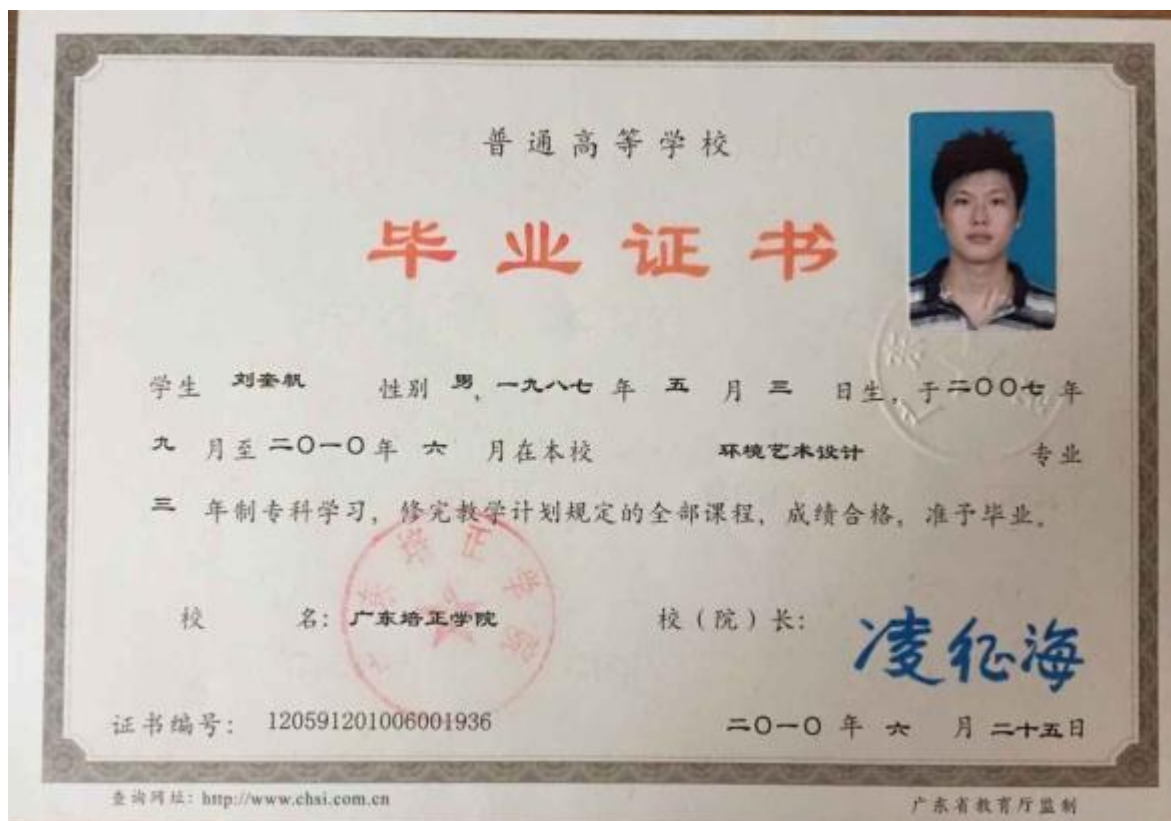 普通高等学校
毕业证书
学生 刘奎帆 性别 男, 一九八七 年 五 月 三 日生, 于二〇〇七 年
九 月至 二〇一〇 年 六 月在本校 环境艺术设计 专业
三 年制专科学习, 修完教学计划规定的全部课程, 成绩合格, 准予毕业。
校 名: 广东培正学院 校(院)长: 凌征海
广东培正学院
证书编号: 120591201006001936 二〇一〇 年 六 月 二十五日
查询网址: http://www.chsi.com.cn 广东省教育厅监制